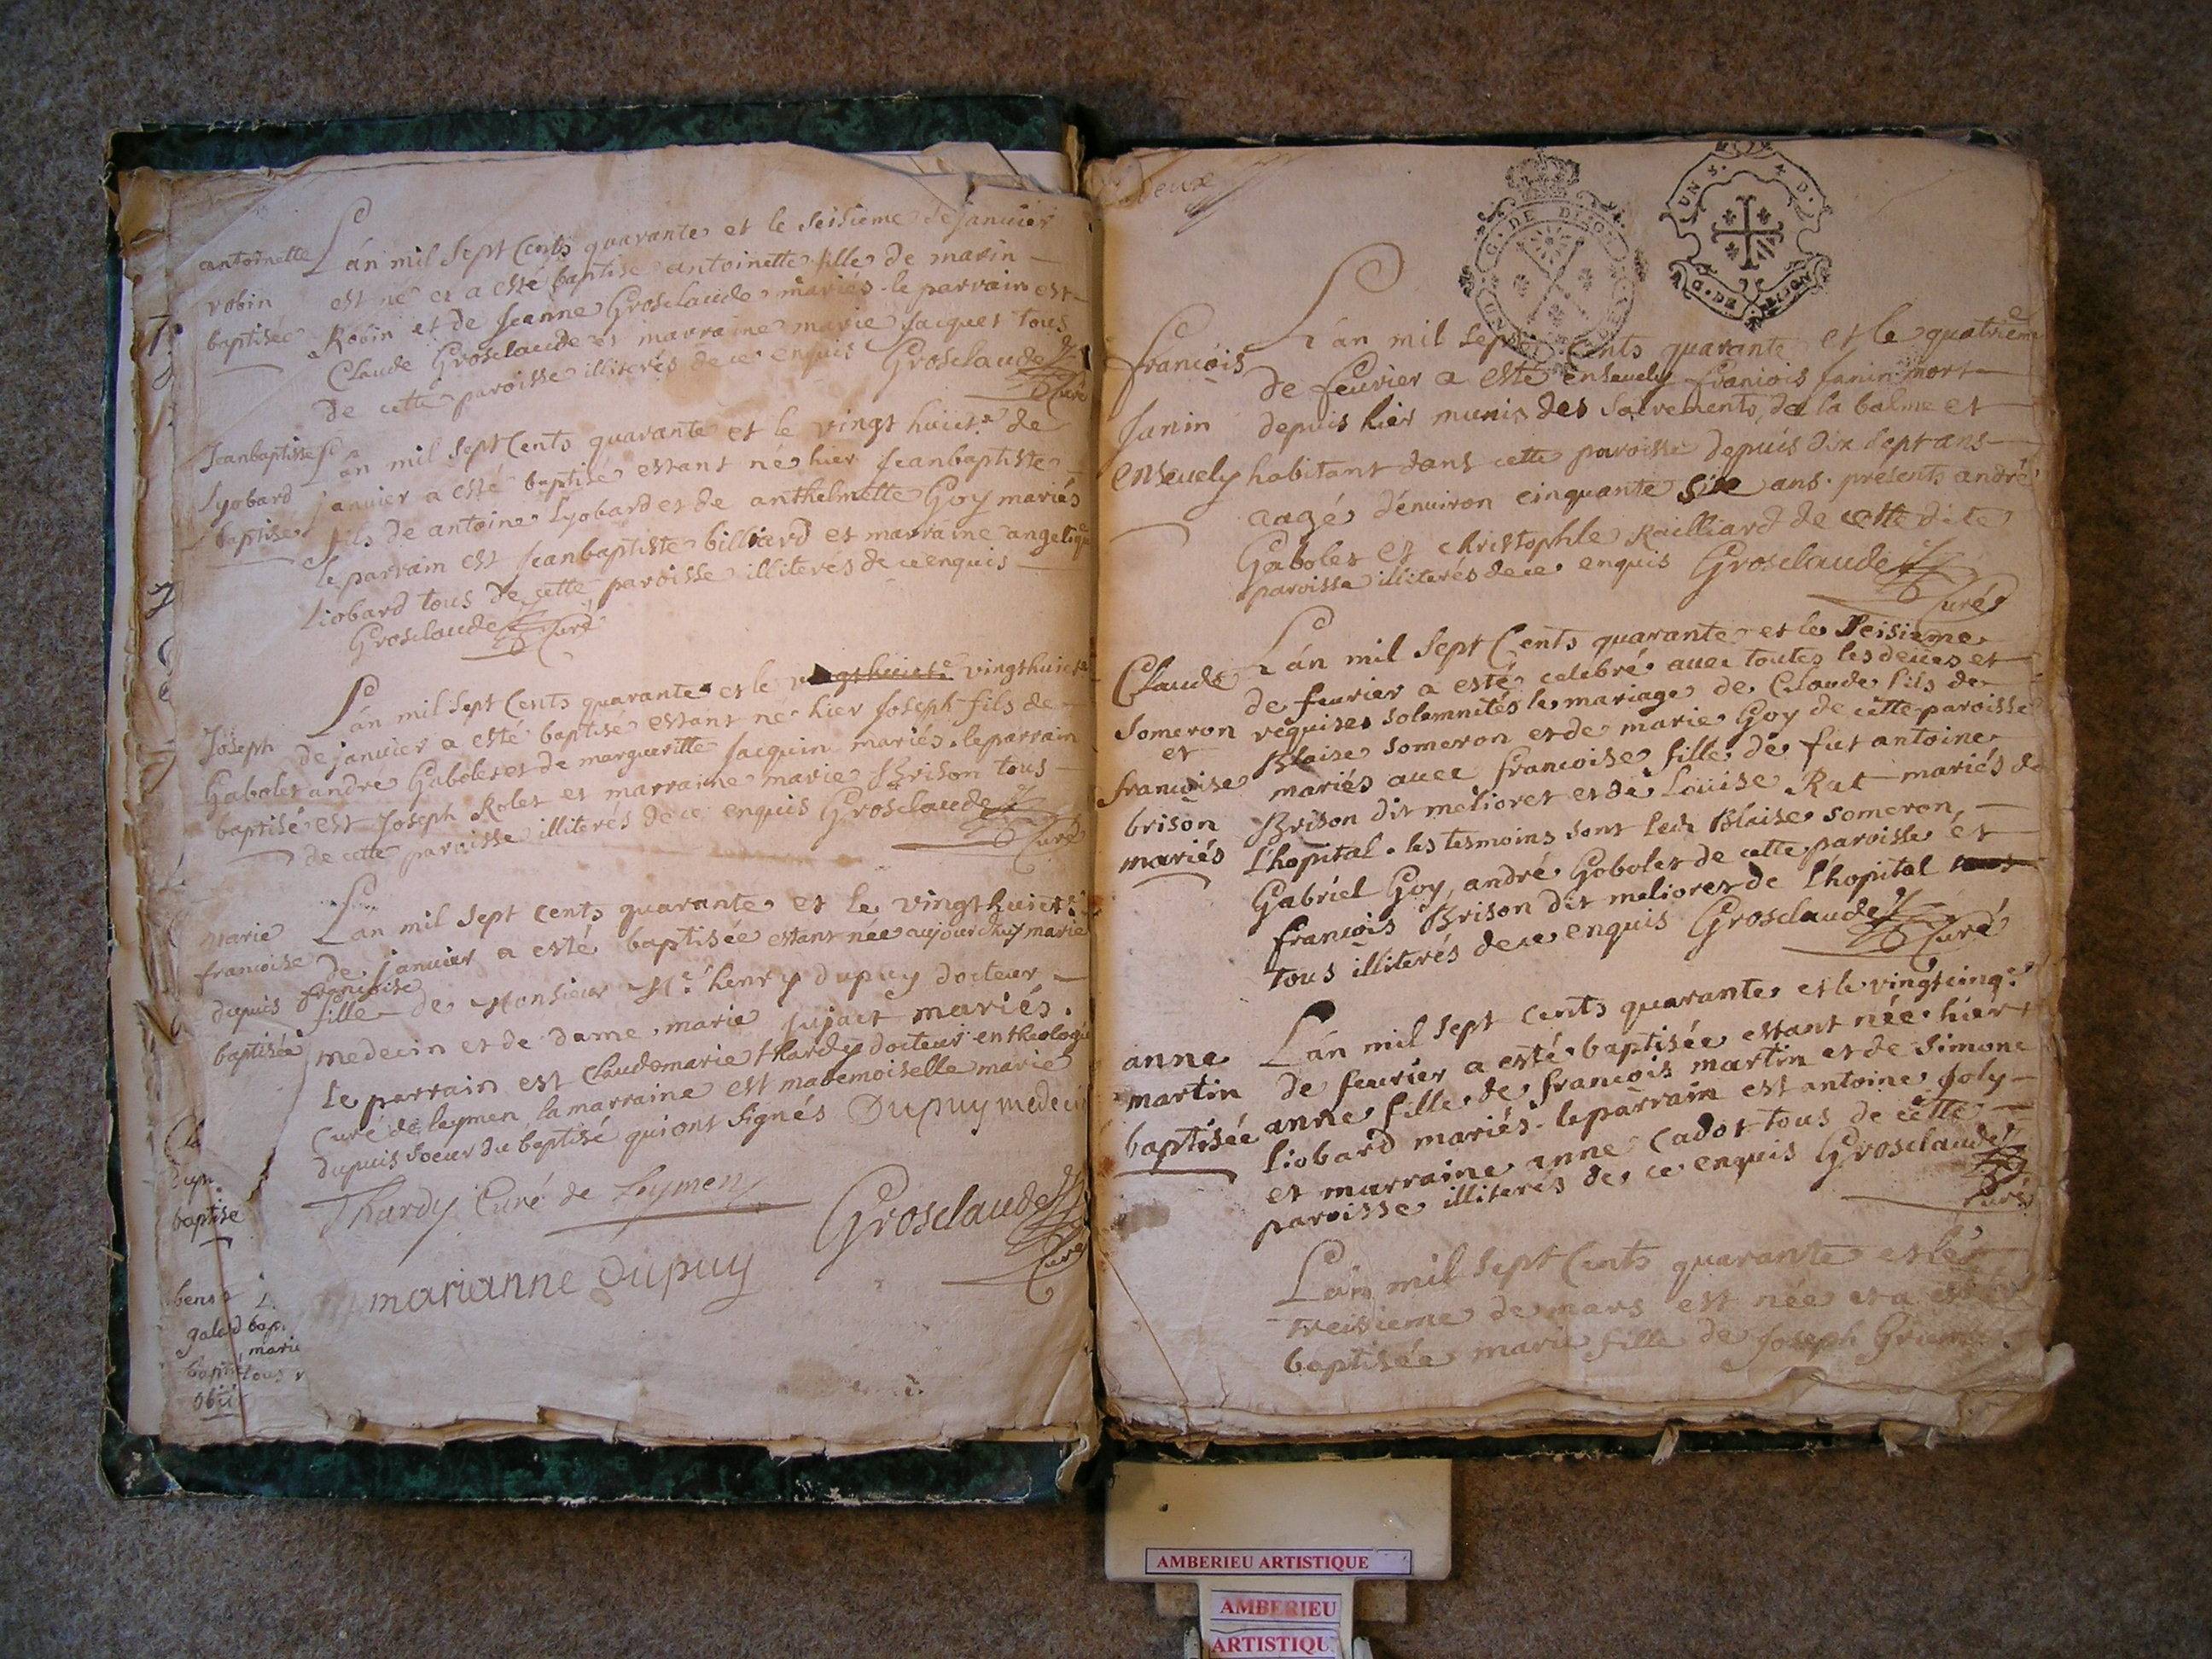 antoinette
robin
baptisée
L'án mil Sept Cents quarante et le Seisieme de janvier
est né et a esté baptisé antoinette fille de marin
Robin et de Jeanne Grosclaude mariés. le parrain est
Claude Grosclaude et marraine marie Jacquet tous
de cette paroisse illiterés de ce enquis Grosclaude
Curé
Jeanbaptiste
Lyobard
baptisé
L'án mil Sept Cents quarante et le vingt huict.e de
janvier a esté baptisé estant né hier Jeanbaptiste
fils de antoine Lyobard et de anthelmette Goy mariés
le parrain est Jeanbaptiste billiard et marraine angelique
Liobard tous de cette paroisse illiterés de ce enquis
Grosclaude Curé
Joseph
Gabolet
baptisé
L'án mil Sept Cents quarante et le vingthuict.e vingthuict.e
de janvier a esté baptisé estant né hier Joseph fils de
andré Gabolet et de margueritte Jacquin mariés. le parrain
est Joseph Rolet et marraine marie Brison tous
de cette paroisse illiterés de ce enquis Grosclaude
Curé
marie
francoise
dupuis
baptisée
L'an mil Sept cents quarante et le vingthuict.e
de janvier a esté baptisée estant née aujourdhuy marie
francoise
fille de Monsieur M.e henry Dupuy docteur
medecin et de dame marie Jujat mariés.
Le parrain est Claudemarie thardy docteur en theologie
Curé de leymen la marraine est mademoiselle marie
dupuis Soeur du baptisé qui ont Signés Dupuy medecin
Thardy Curé de Leymen
Grosclaude
Curé
marianne Dupuy
baptise
galand bap.
marie
tous
Deux
G. DE DIJON
UN S. 4 D.
G. DE DIJON
francois
Janin
ensevely
L'án mil Sept Cents quarante et le quatriem
de feuvrier a esté ensevely francois Janin mort
depuis hier munis des Sacrements, de la balme et
habitant dans cette paroisse depuis dix Sept ans
aagé d'énviron cinquante Six ans. présents andré
Gabolet et christophle Railliard de cette dite
paroisse illiterés de ce enquis Grosclaude
Curé
Claude
Someron
et
francoise
brison
mariés
L'án mil Sept Cents quarante et le Seisieme
de feuvrier a esté celebré avec toutes les deües et
requises Solemnités le mariage de Claude fils de
Blaise Someron et de marie Goy de cette paroisse
mariés avec francoise fille de fut antoine
Brison dit melioret et de Loüise Rat mariés de
L'hopital. les tesmoins Sont led. Blaise Someron,
Gabriel Goy, andré Gobolet de cette paroisse et
francois Brison dit melioret de L'hopital
tous illiterés de ce enquis Grosclaude
Curé
anne
martin
baptisée
L'án mil Sept cents quarante et le vingtcinq.e
de feuvrier a esté baptisée estant née hier
anne fille de francois martin et de Simone
Liobard mariés. le parrain est antoine Joly
et marraine anne Cadot tous de cette
paroisse illiterés de ce enquis Grosclaude
Curé
L'an mil Sept Cents quarante et le
treisieme de mars est née et a esté
baptisée marie fille de Joseph
AMBERIEU ARTISTIQUE
AMBERIEU
ARTISTIQU